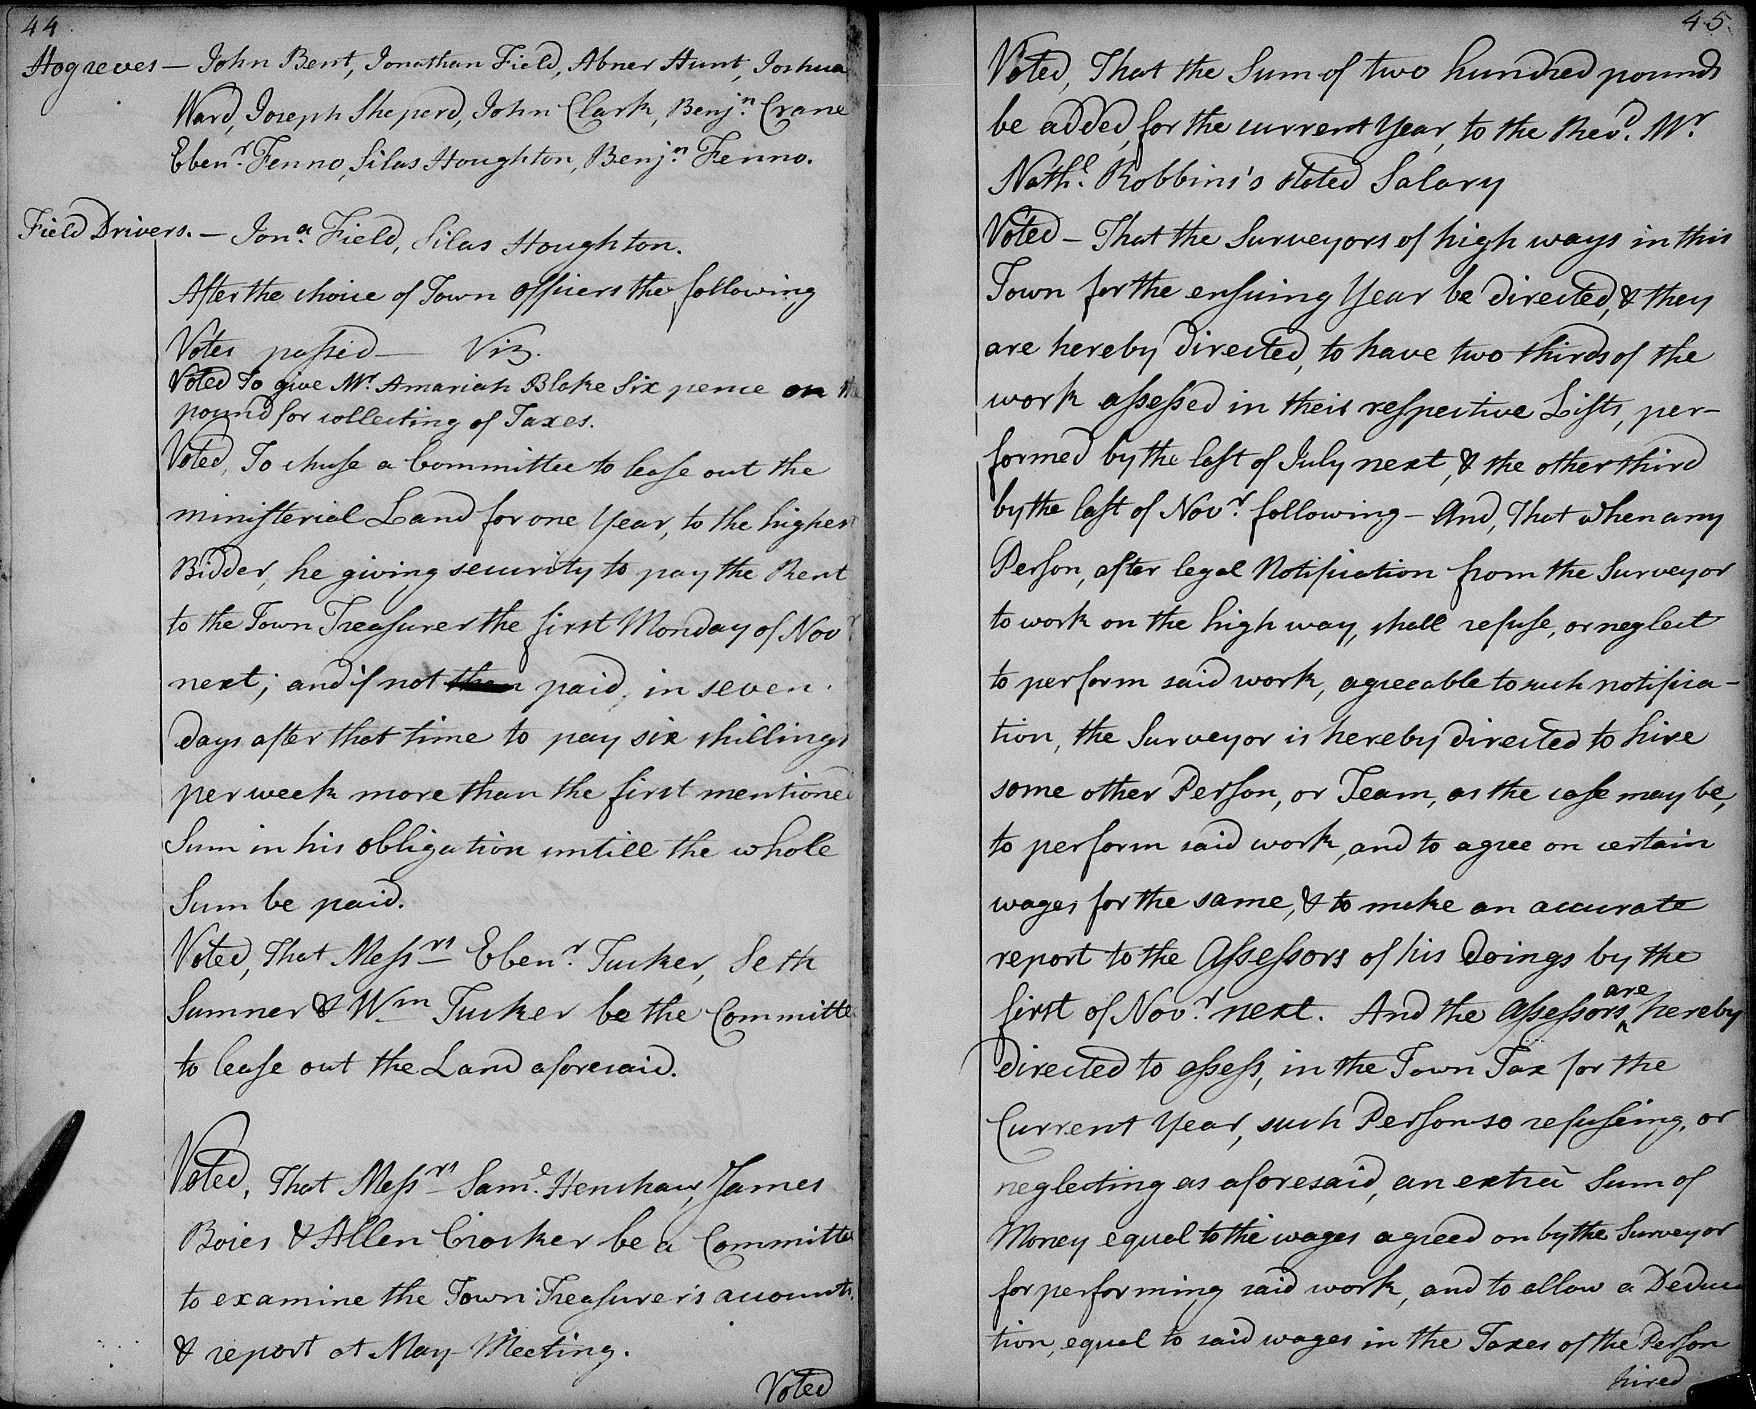 44.
Hogreves — John Bent, Jonathan Field, Abner Hunt, Joshua
Ward, Joseph Sheperd, John Clark, Benjn. Crane
Ebenr. Fenno, Silas Houghton, Benjn. Fenno.
Field Drivers. — Jona. Field, Silas Houghton.
After the choice of Town officers the following
Votes passed — Viz.
Voted To give Mr. Amariah Blake Six pence on the
pound for collecting of Taxes.
Voted, To chuse a Committee to lease out the
ministerial Land for one Year, to the highest
Bidder, he giving security to pay the Rent
to the Town Treasurer the first Monday of Novr.
next; and if not then paid, in seven
days after that time to pay six shillings
per week more than the first mentioned
Sum in his obligation untill the whole
Sum be paid.
Voted, That Messrs Ebenr. Tucker, Seth
Sumner & Wm Tucker be the Committee
to lease out the Land aforesaid.
Voted, That Messrs Saml. Henshaw, James
Boies & Allen Crocker be a Committee
to examine the Town Treasurer's accounts,
& report at May Meeting.
Voted
45.
Voted, That the Sum of two hundred pounds
be added, for the current Year, to the Revd. Mr
Nathl. Robbins's stated Salary
Voted — That the Surveyors of high ways in this
Town for the ensuing Year be directed, & they
are hereby directed, to have two thirds of the
work assessed in their respective Lists, per-
formed by the last of July next, & the other third
by the last of Novr. following — And, That when any
Person, after legal Notification from the Surveyor
to work on the high way, shall refuse, or neglect
to perform said work, agreeable to such notifica-
tion, the Surveyor is hereby directed to hire
some other Person, or Team, as the case may be,
to perform said work, and to agree on certain
wages for the same, & to make an accurate
report to the Assessors of his Doings by the
first of Novr. next. And the assessors are hereby
directed to assess, in the Town Tax for the
Current Year, such Person so refuseing, or
neglecting as aforesaid, an extra Sum of
Money equal to the wages agreed on by the Surveyor
for performing said work, and to allow a Deduc
tion, equal to said wages in the Taxes of the Person
hired